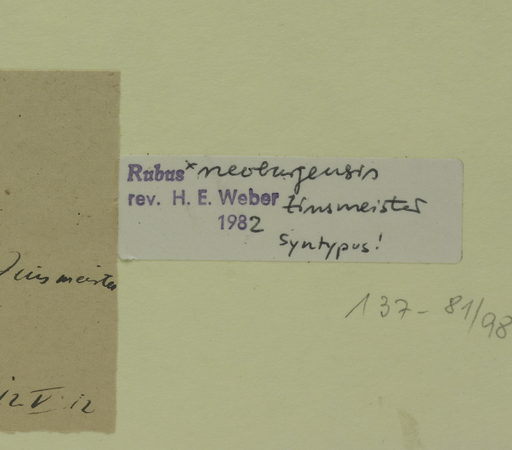 Rubus × neoburgensis
rev. H. E. Weber Zinsmeister
1982
Syntypus!
Zinsmeister
137-81/98
12 V. 12